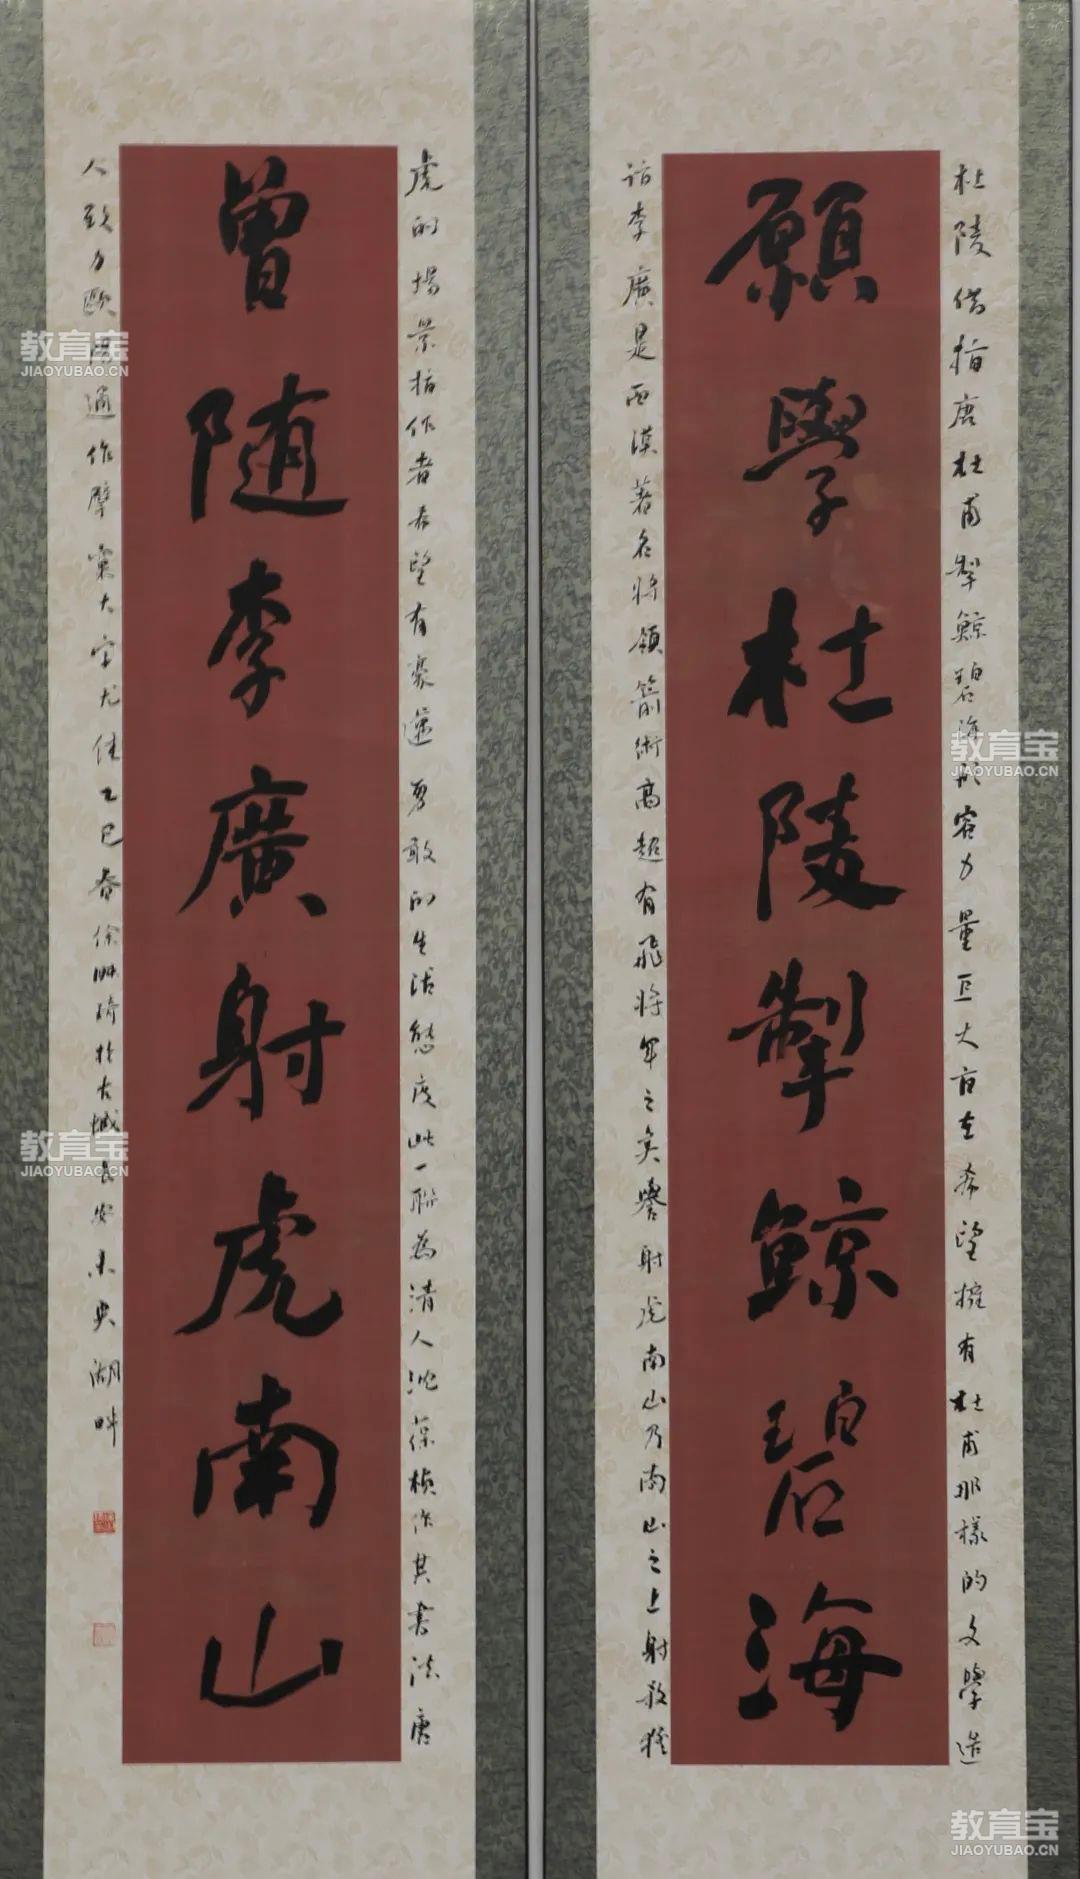 願學杜陵掣鯨碧海
曾随李廣射虎南山
杜陵借指唐杜甫掣鯨碧海形容力量巨大旨在希望擁有杜甫那樣的文學造
詣李廣是西漢著名將領箭術高超有飛將軍之美譽射虎南山乃南山之上射殺猛
虎的場景指作者希望有豪邁勇敢的生活態度此一聯為清人沈葆楨作其書法唐
人致力歐陽通作擘窠大字尤佳乙巳春徐 於古城長安未央湖畔
教育宝
JIAOYUBAO.CN
教育宝
JIAOYUBAO.CN
教育宝
JIAOYUBAO.CN
教育宝
JIAOYUBAO.CN